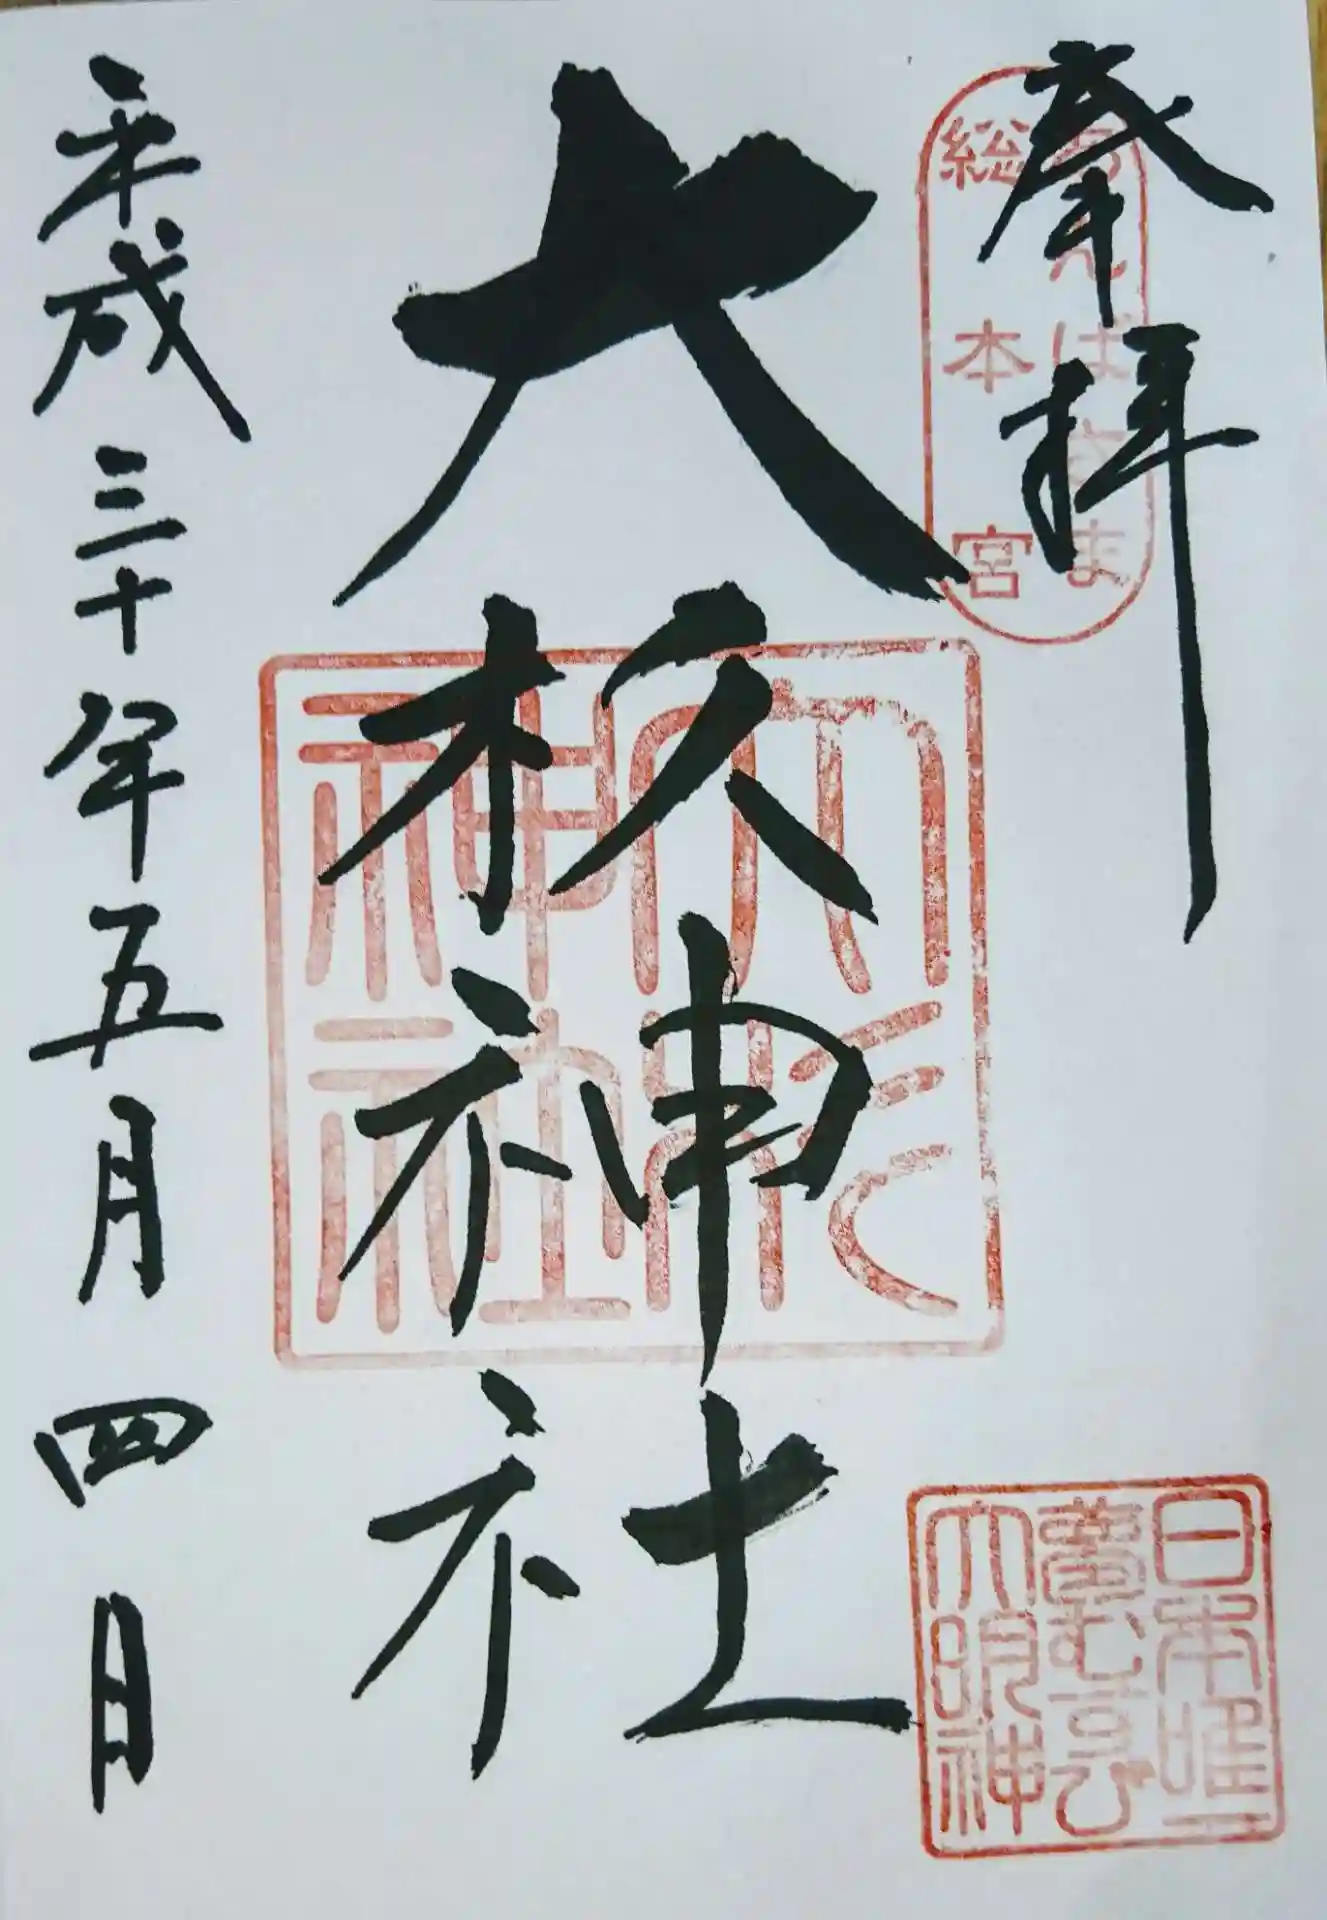 奉拝
あんばさま
総本宮
大杉神社
大杉神社
日本唯一
夢むすび
大明神
平成三十年五月四日